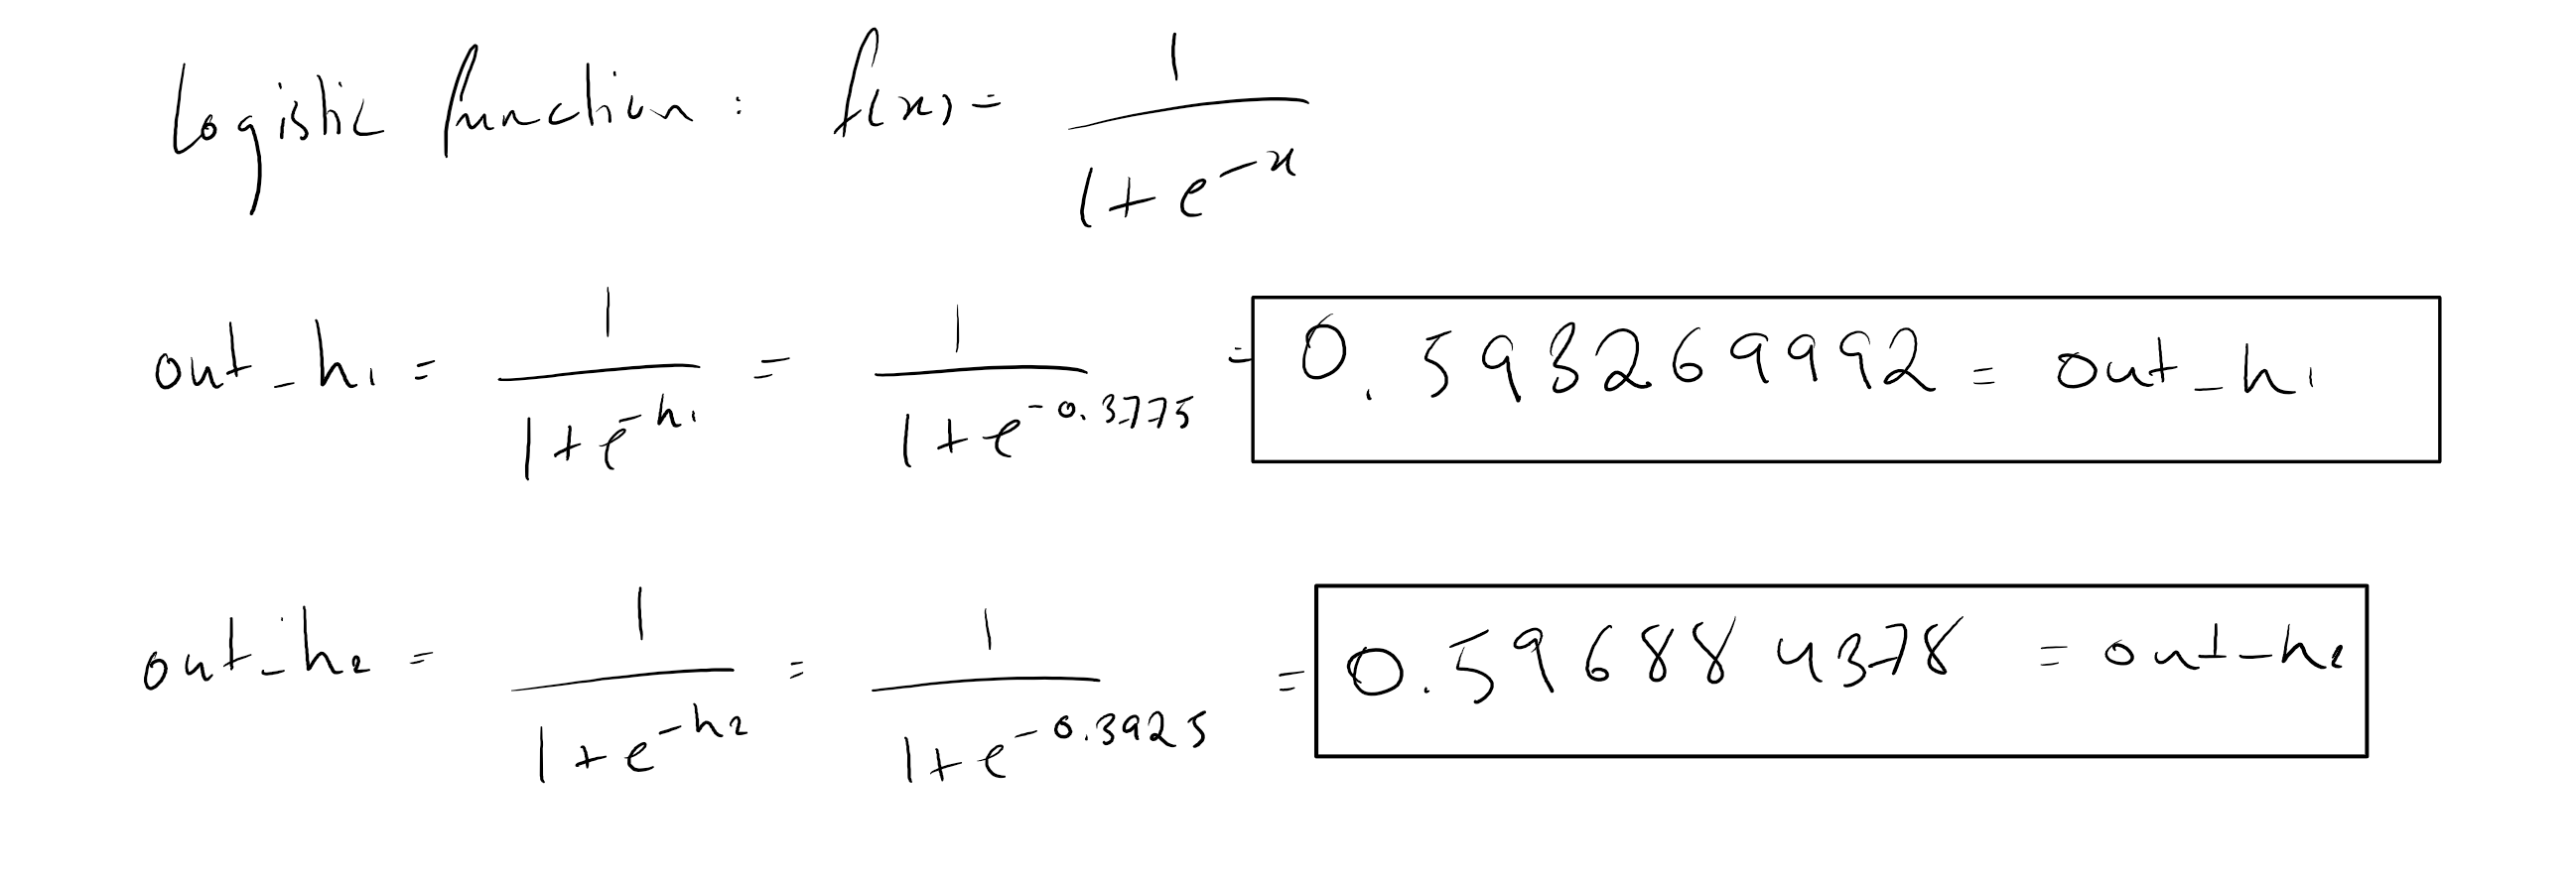 Logistic function: f(x) = 1 / (1 + e^-x)
out_h1 = 1 / (1 + e^-h1) = 1 / (1 + e^-0.3775) = 0.593269992 = out_h1
out_h2 = 1 / (1 + e^-h2) = 1 / (1 + e^-0.3925) = 0.596884378 = out_h2